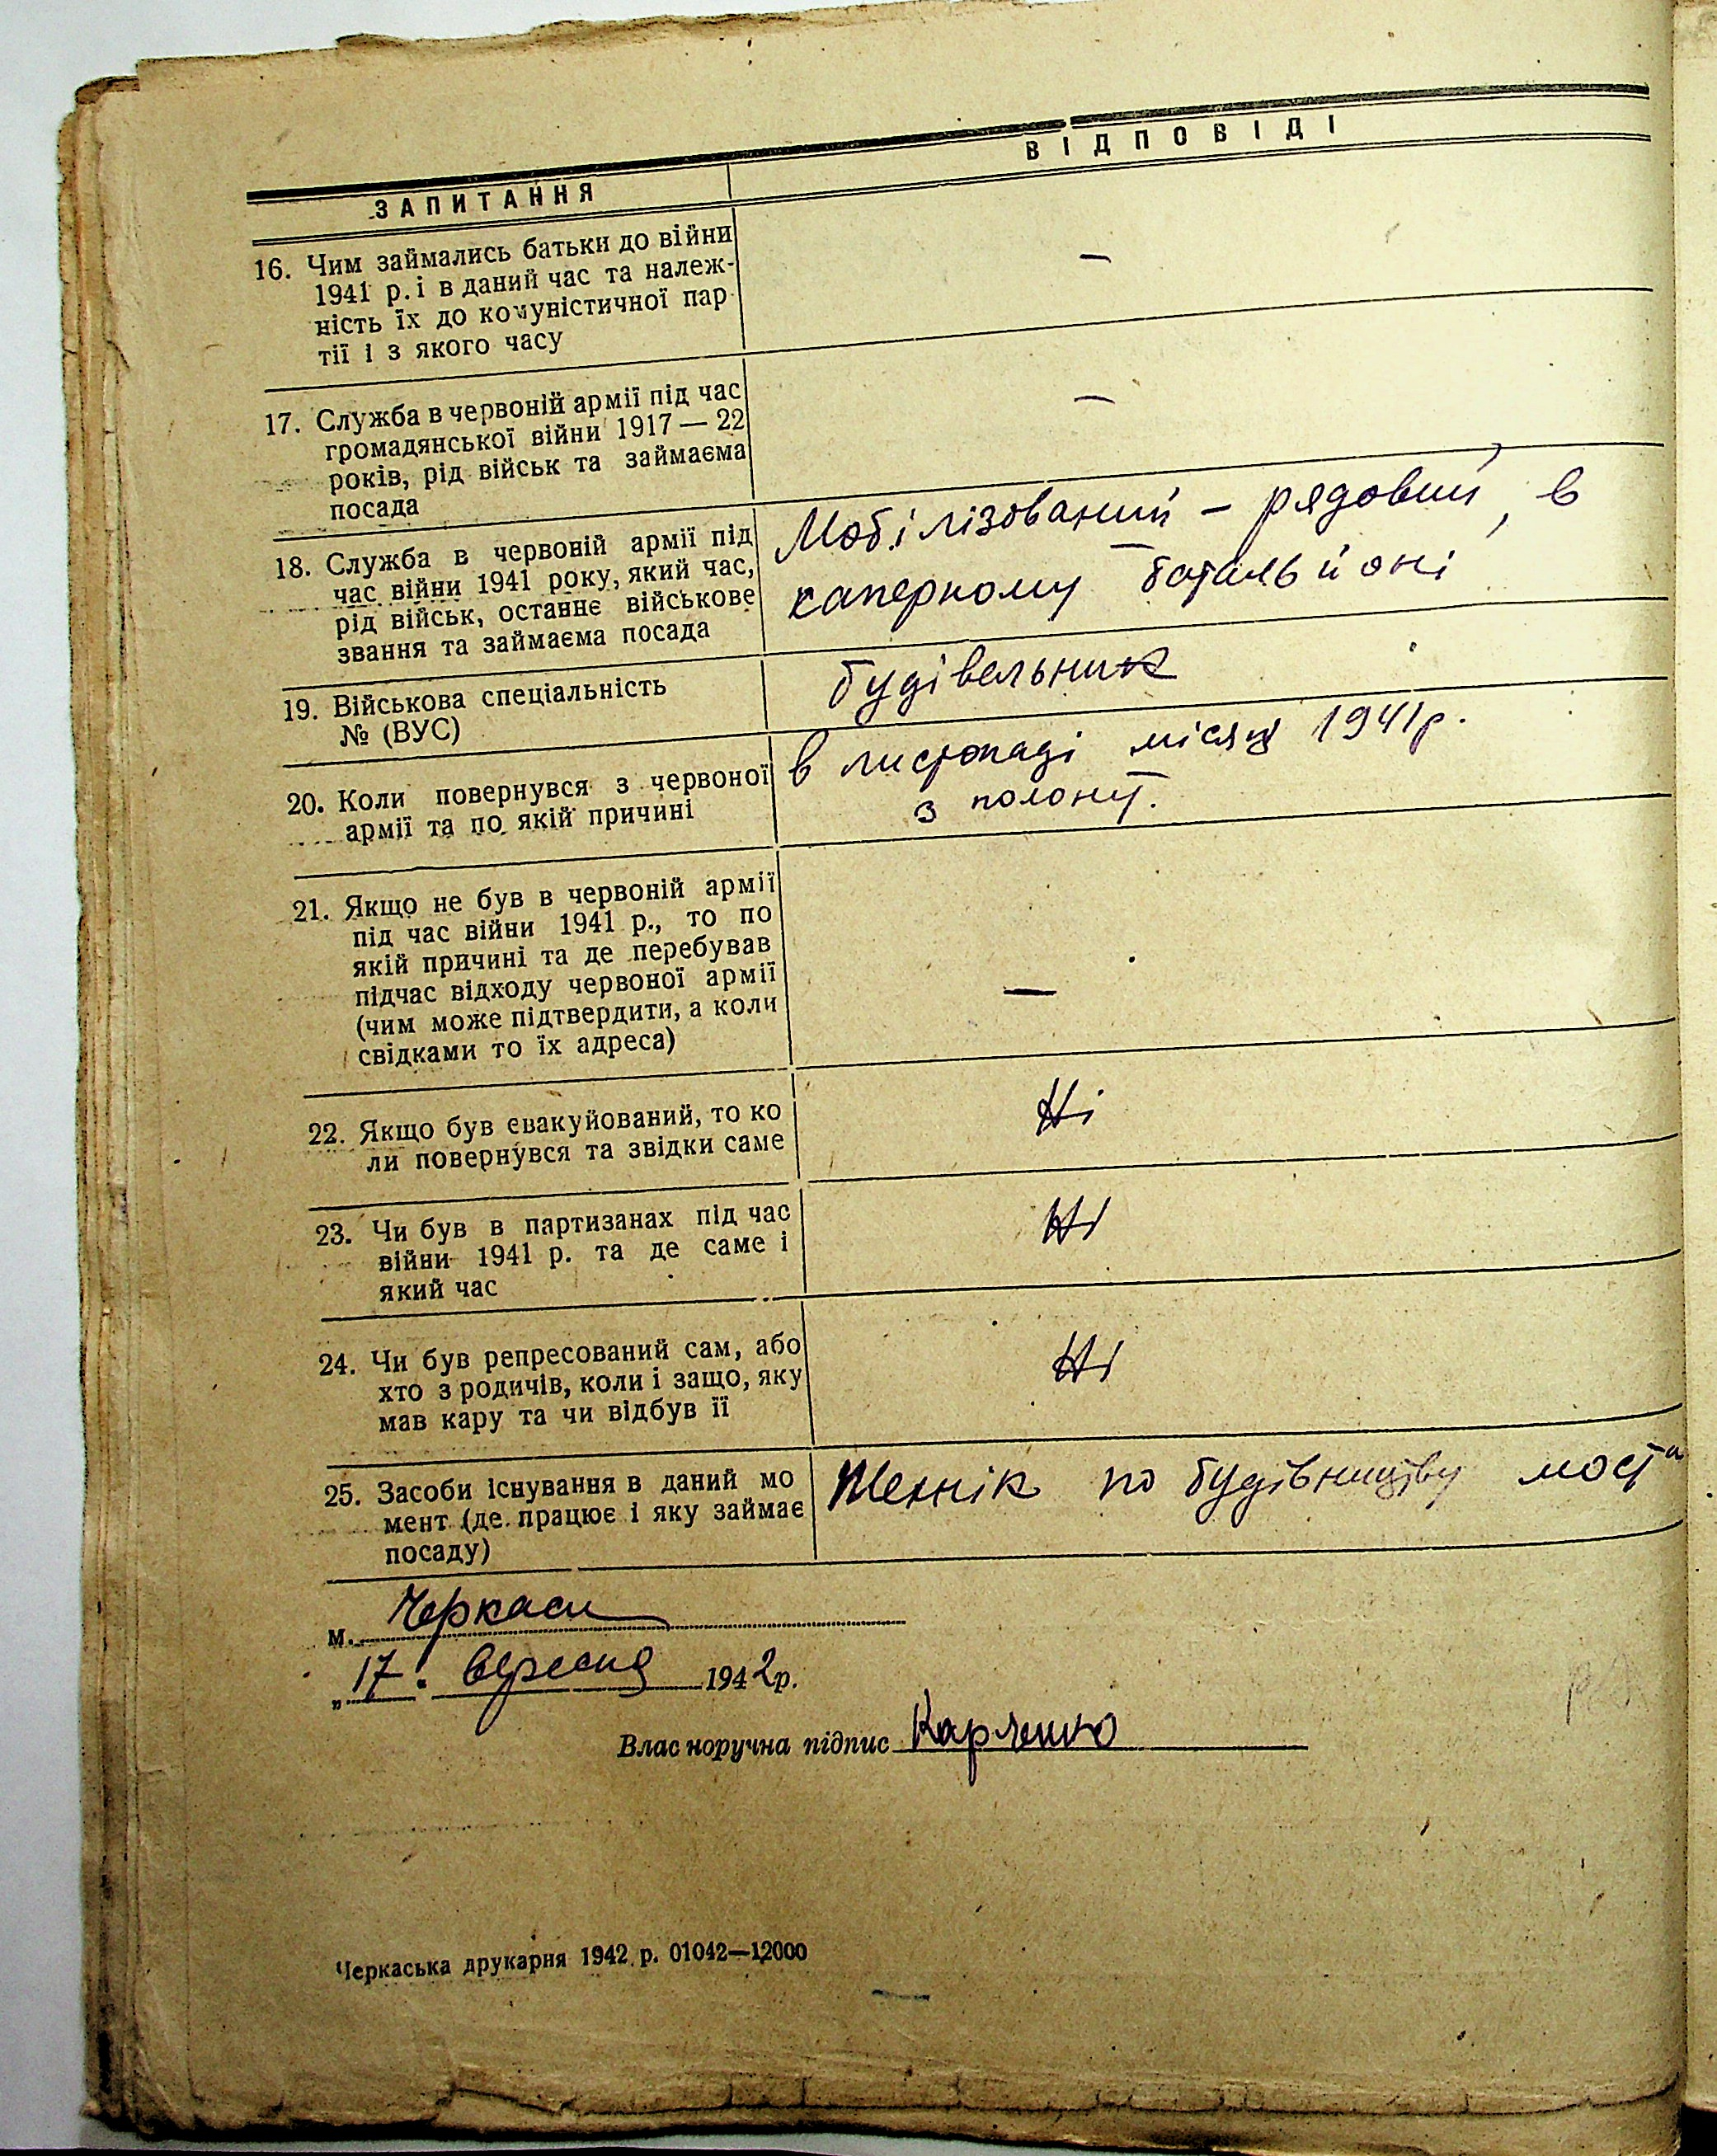 ЗАПИТАННЯ
ВІДПОВІДІ
16. Чим займались батьки до війни
1941 р. і в даний час та належ-
ність їх до комуністичної пар
тії і з якого часу
—
17. Служба в червоній армії під час
громадянської війни 1917 — 22
років, рід військ та займаєма
посада
—
18. Служба в червоній армії під
час війни 1941 року, який час,
рід військ, останнє військове
звання та займаєма посада
Мобілізований – рядовий, в
саперному батальйоні
19. Військова спеціальність
№ (ВУС)
будівельник
20. Коли повернувся з червоної
армії та по якій причині
в листопаді місяці 1941 р.
з полону.
21. Якщо не був в червоній армії
під час війни 1941 р., то по
якій причині та де перебував
підчас відходу червоної армії
(чим може підтвердити, а коли
свідками то їх адреса)
—
22. Якщо був евакуйований, то ко
ли повернувся та звідки саме
Ні
23. Чи був в партизанах під час
війни 1941 р. та де саме і
який час
Ні
24. Чи був репресований сам, або
хто з родичів, коли і защо, яку
мав кару та чи відбув її
Ні
25. Засоби існування в даний мо
мент (де працює і яку займає
посаду)
Технік по будівництву моста
м. Черкаси
„17" вересня 1942 р.
Власноручна підпис
Черкаська друкарня 1942 р. 01042—12000